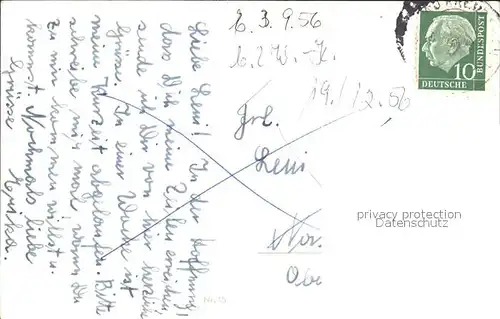 Liebe Leni! In der Hoffnung,
dass Dich meine Zeilen erreichen
sende ich Dir von hier herzliche
Grüsse. In einer Woche ist
meine Kurzeit abgelaufen. Bitte
schreibe mir mal wann Du
zu mir kommen willst.
kommst. Nochmals liebe
Grüsse Erika.
E. 3. 9. 56
19./12. 56
Frl.
Leni
DEUTSCHE
BUNDESPOST
10
privacy protection
Datenschutz